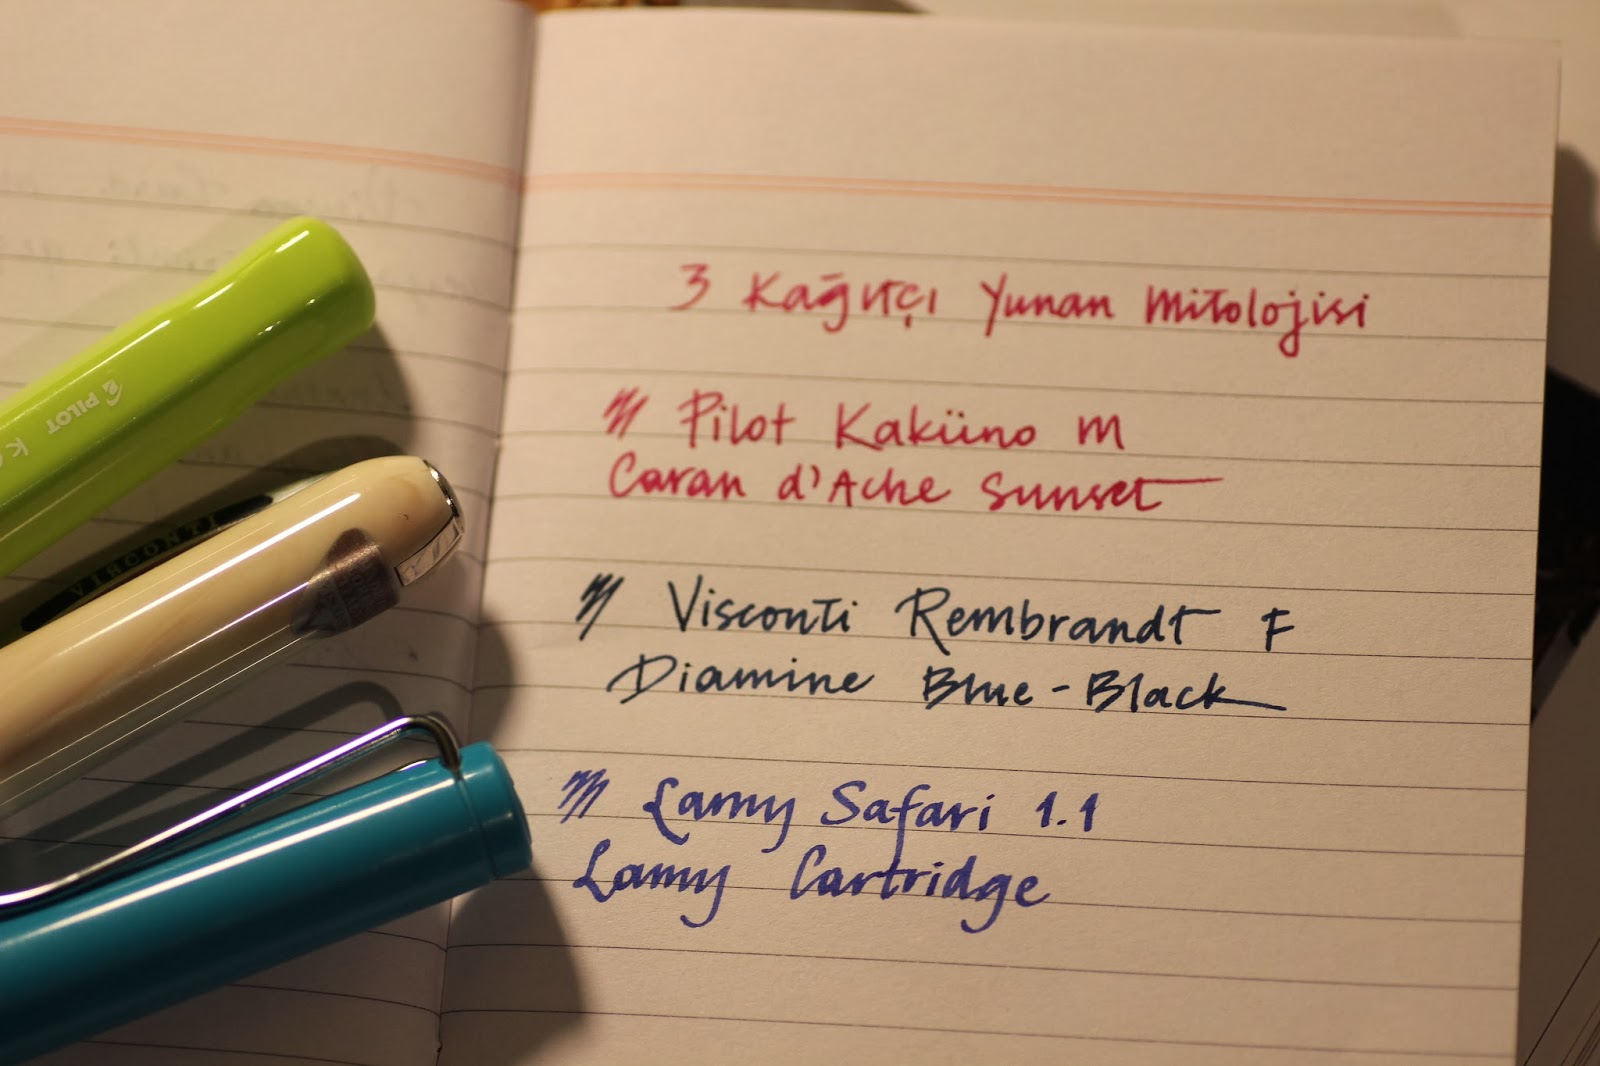 3 Kağıtçı Yunan Mitolojisi
Pilot Kaküno M
Caran d'Ache Sunset
Visconti Rembrandt F
Diamine Blue-Black
Lamy Safari 1.1
Lamy Cartridge
PILOT
VISCONTI